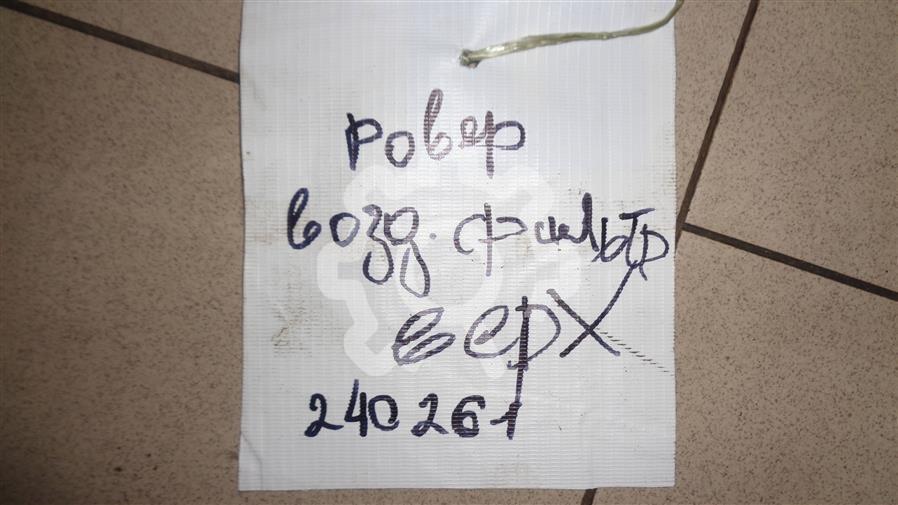 Ровер
возд. фильтр
верх
240261